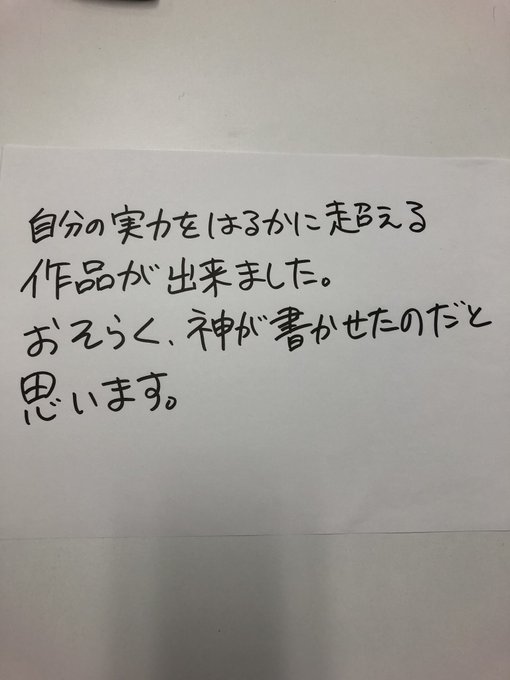 自分の実力をはるかに超える
作品が出来ました。
おそらく、神が書かせたのだと
思います。